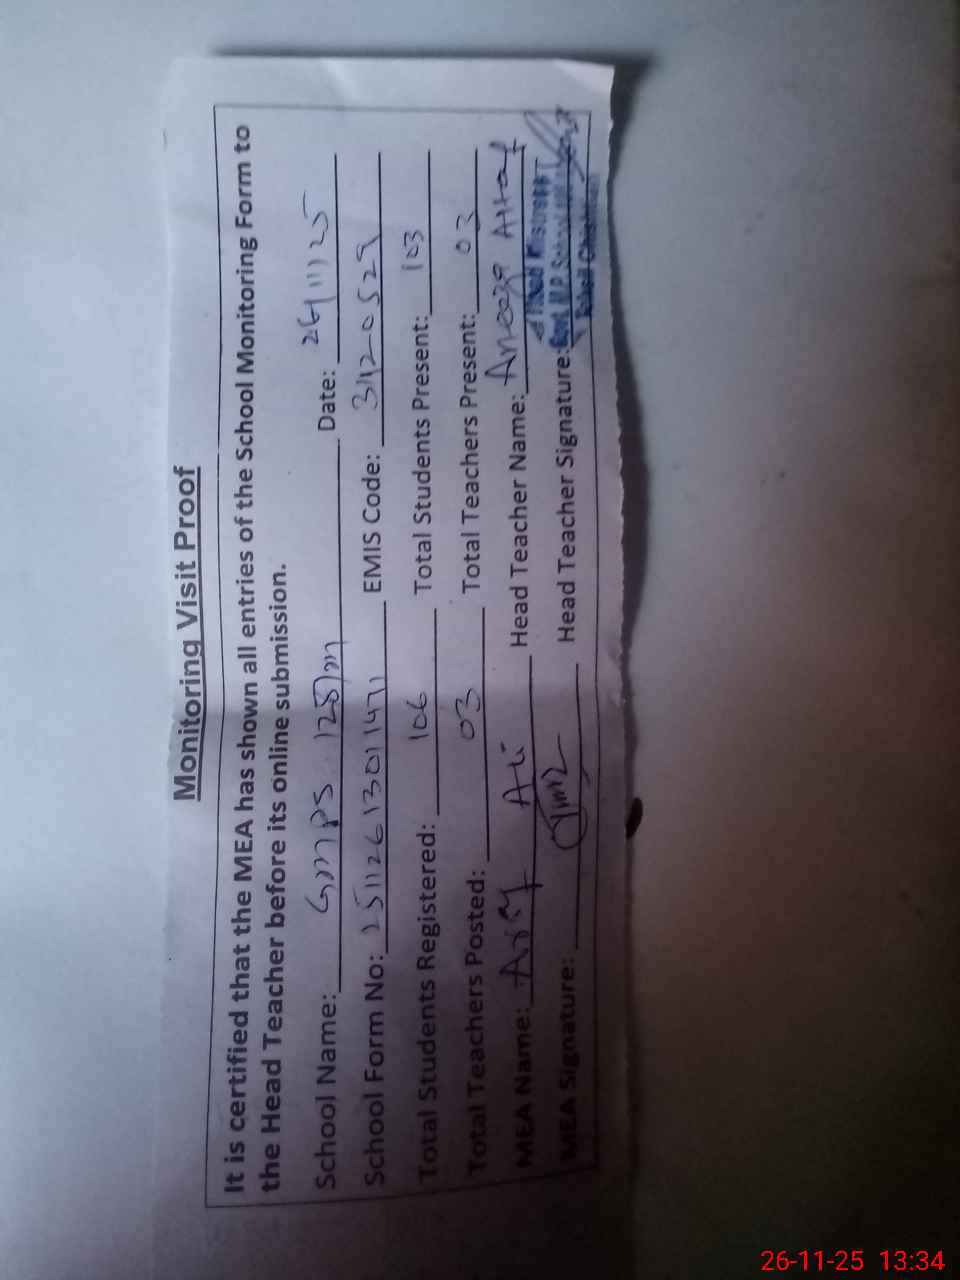 Monitoring Visit Proof
It is certified that the MEA has shown all entries of the School Monitoring Form to
the Head Teacher before its online submission.
School Name: GMPS 128/M Date: 26/11/25
School Form No: 25112613011471 EMIS Code: 31120529
Total Students Registered: 106 Total Students Present: 103
Total Teachers Posted: 03 Total Teachers Present: 03
MEA Name: Arif Ali Head Teacher Name:
MEA Signature: Head Teacher Signature:
Head Mistress
Govt. M.P. School
Tehsil
26-11-25 13:34